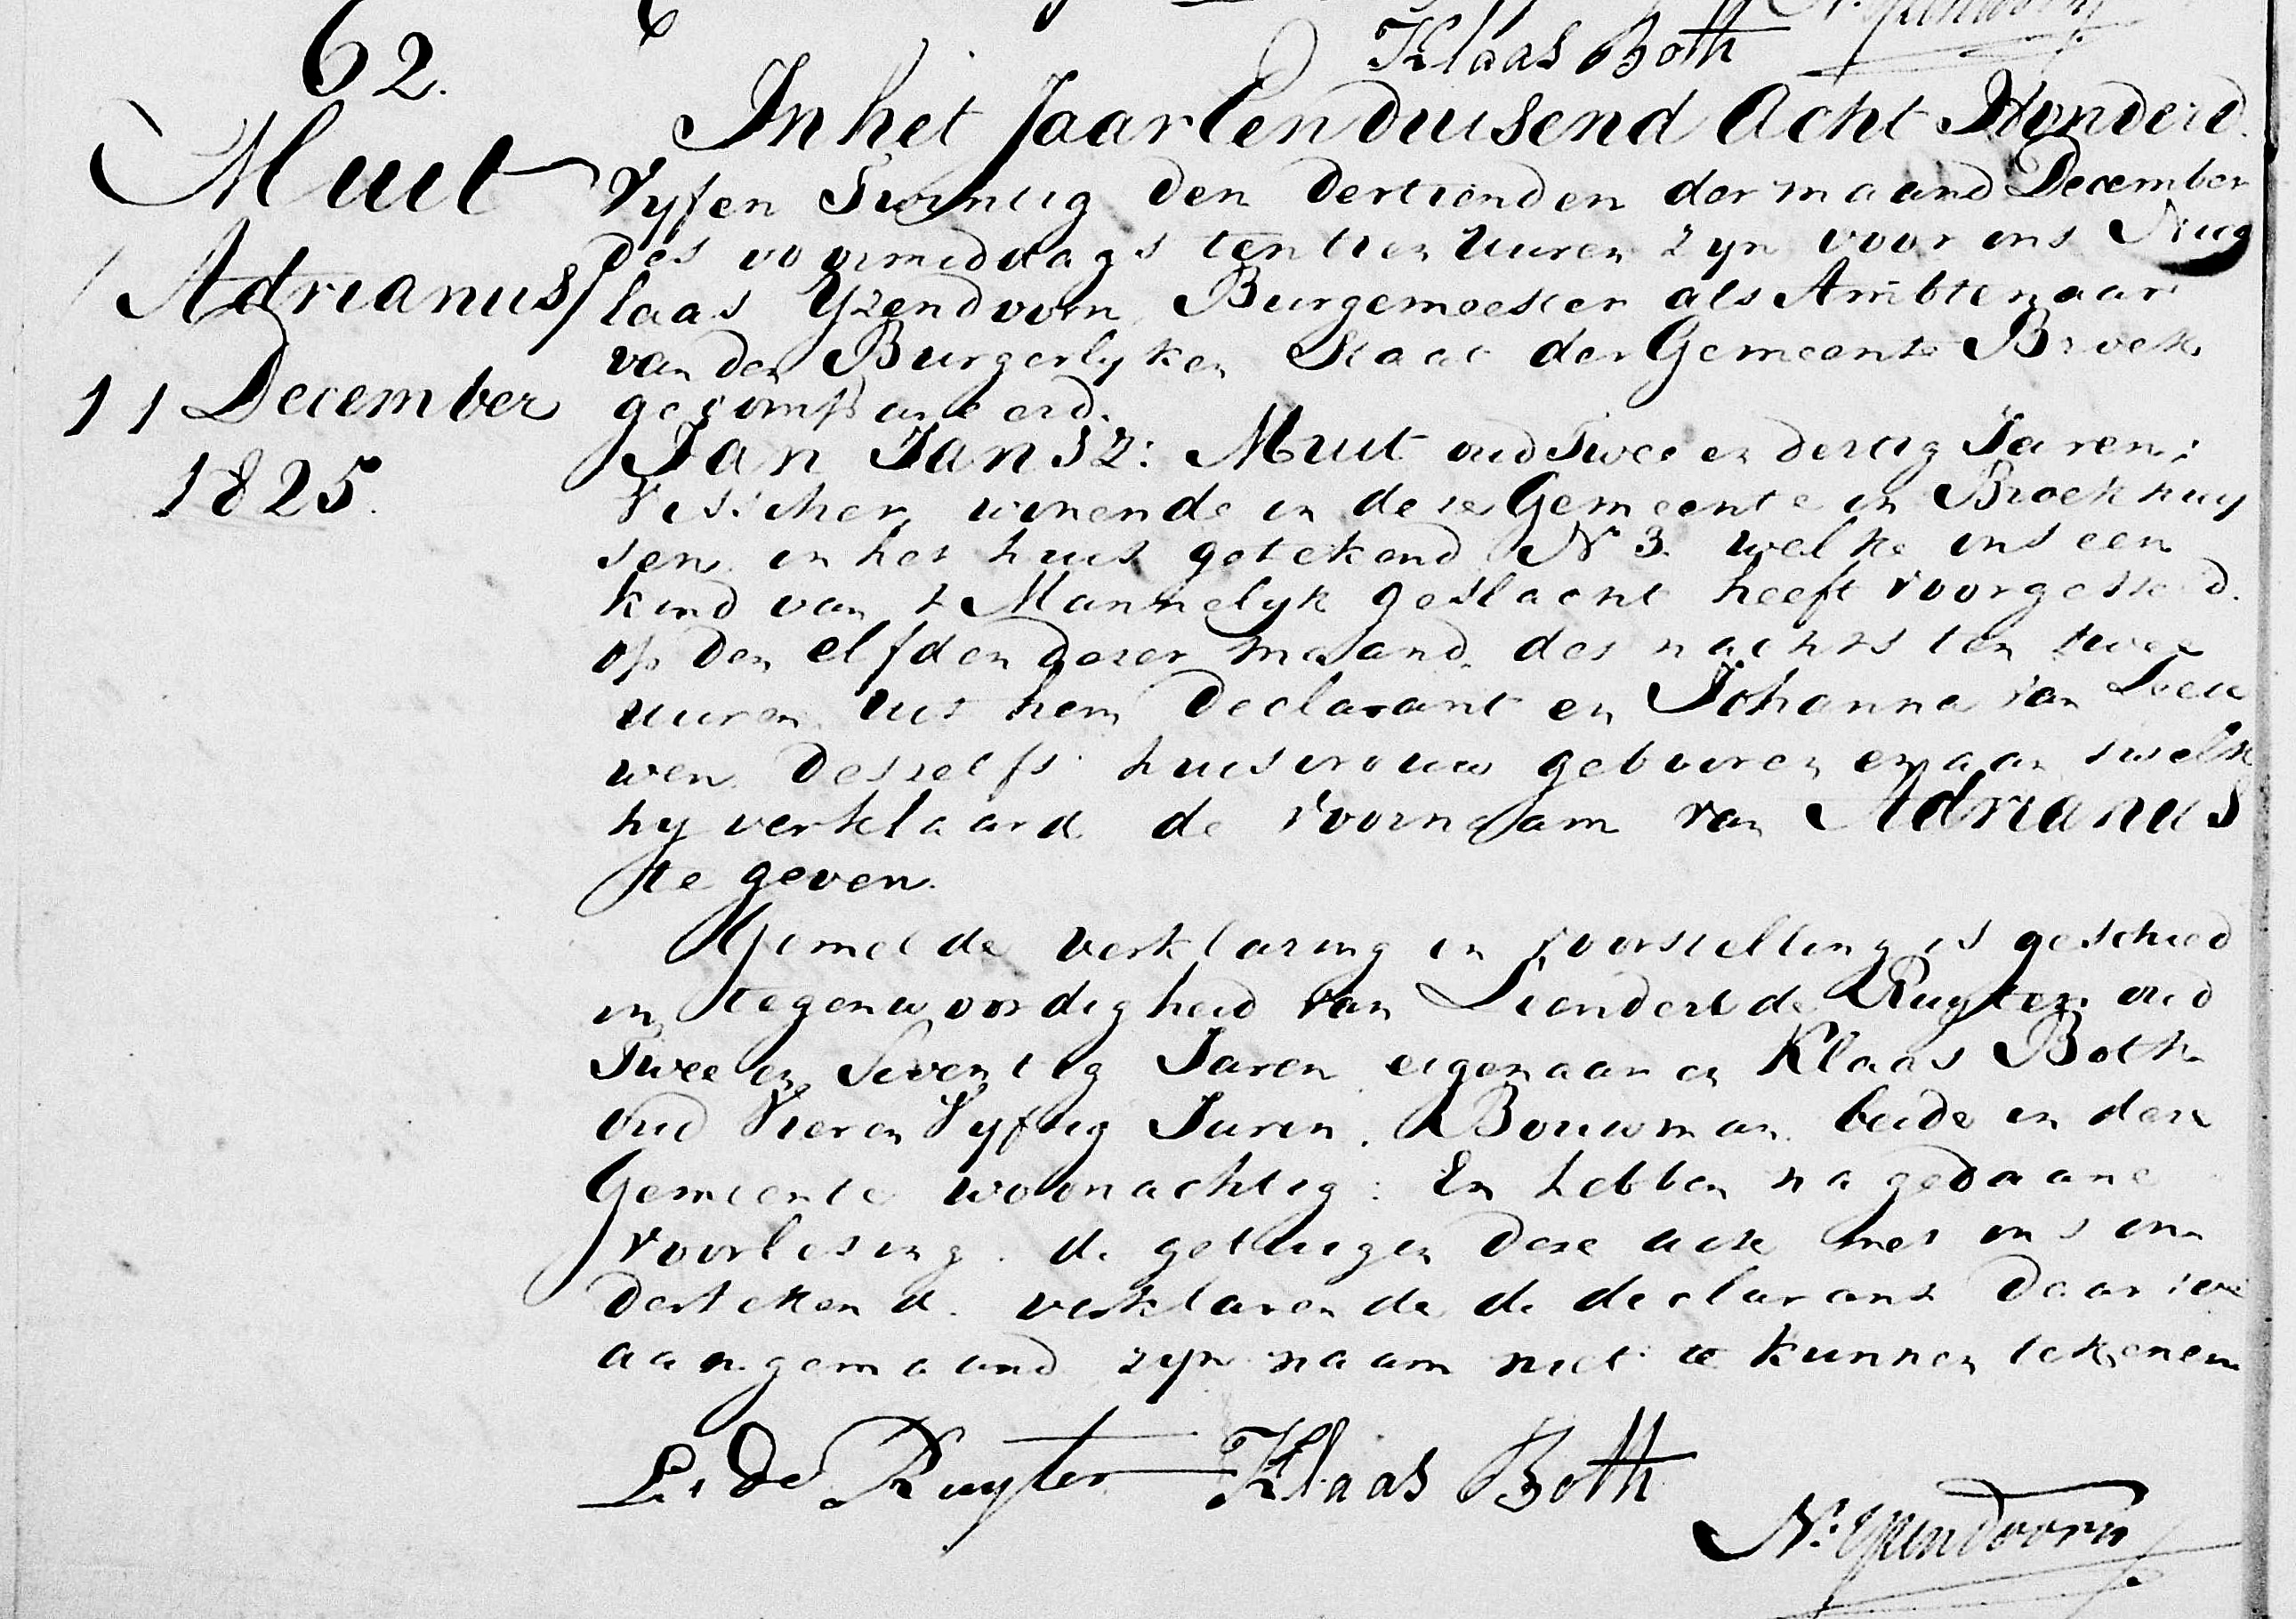 Klaas Both
62.
Muit
Adrianus
11 December
1825.
In het Jaar Een duisend Acht Honderd
Vyfen Twintig den dertienden der maand December
des voormiddags ten tien Uuren zyn voor ons
laas Yzendoorn Burgemeester als Ambtenaar
van den Burgerlyken Staat der Gemeente Broek
gecompareerd.
Jan Jansz: Muit oud Twee en dertig Jaren;
Visscher, wonende in dese Gemeente in Broekhuy
sen in het huis getekend No 3. welke ons een
kind van t Mannelyk geslacht heeft voorgesteld.
op den elfden dezer maand des nachts ten twee
uuren uit hem Declarant en Johanna van Leeu
wen desselfs huisvrouw gebooren en aan twelk
hy verklaard de voornaam van Adrianus
te geven.
Gemelde verklaring en voorstelling is geschied
in tegenwoordigheid van Liendert de Ruyter oud
Twee en Seventig Jaren eigenaar en Klaas Both
oud Vier en Vyftig Jaren. Bouwman beide in dese
Gemeente woonachtig: En hebben na gedaane
voorlesing de getuigen dese acte met ons on
dertekend. verklarende de declarant daar toe
aangemaand zyn naam niet te kunnen tekenen
L. de Ruyter Klaas Both
N. Yzendoorn